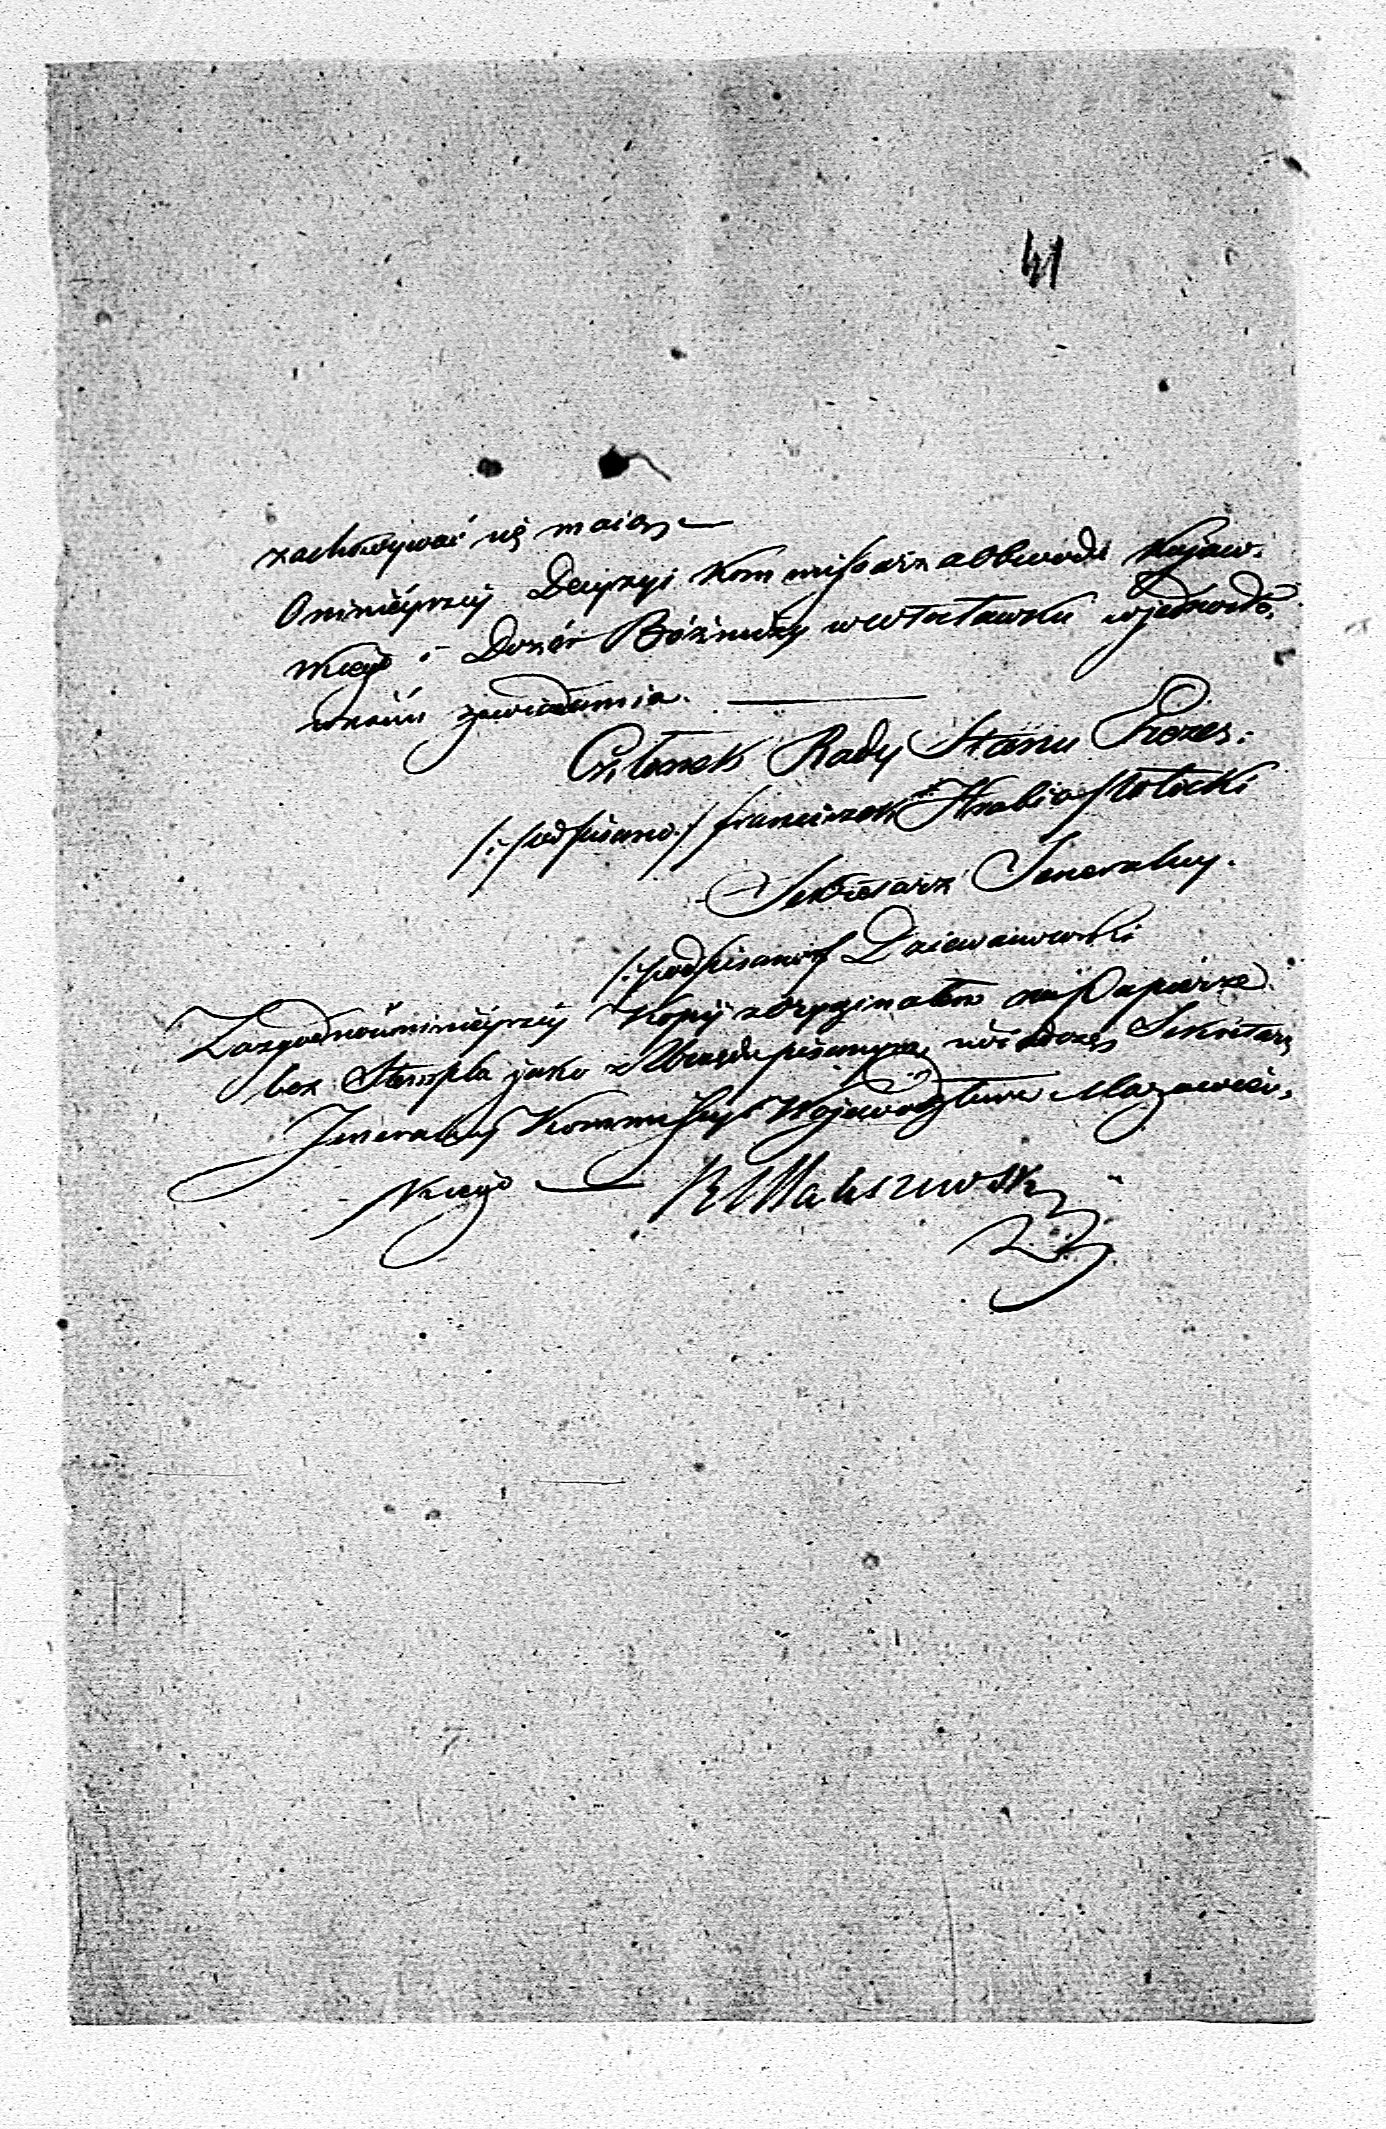 41
zachowywać się maią. —
O ninieyszey Decyzyi Kommissarza Obwodu Kujaw-
skiego i Dozór Bóżniczy w Włocławku
zawiadamia. —
Członek Rady Stanu Prezes:
/:podpisano:/ Franciszek Hrabia Potocki
Sekretarz Jeneralny.
/:podpisano:/ Dziewanowski
Za zgodność ninieyszey Kopii z Oryginałem na Papierze
bez Stempla jako z Urzędu pisanym, Sekretarz
Jeneralny Kommissyi Województwa Mazowiec-
kiego — Maliszewski